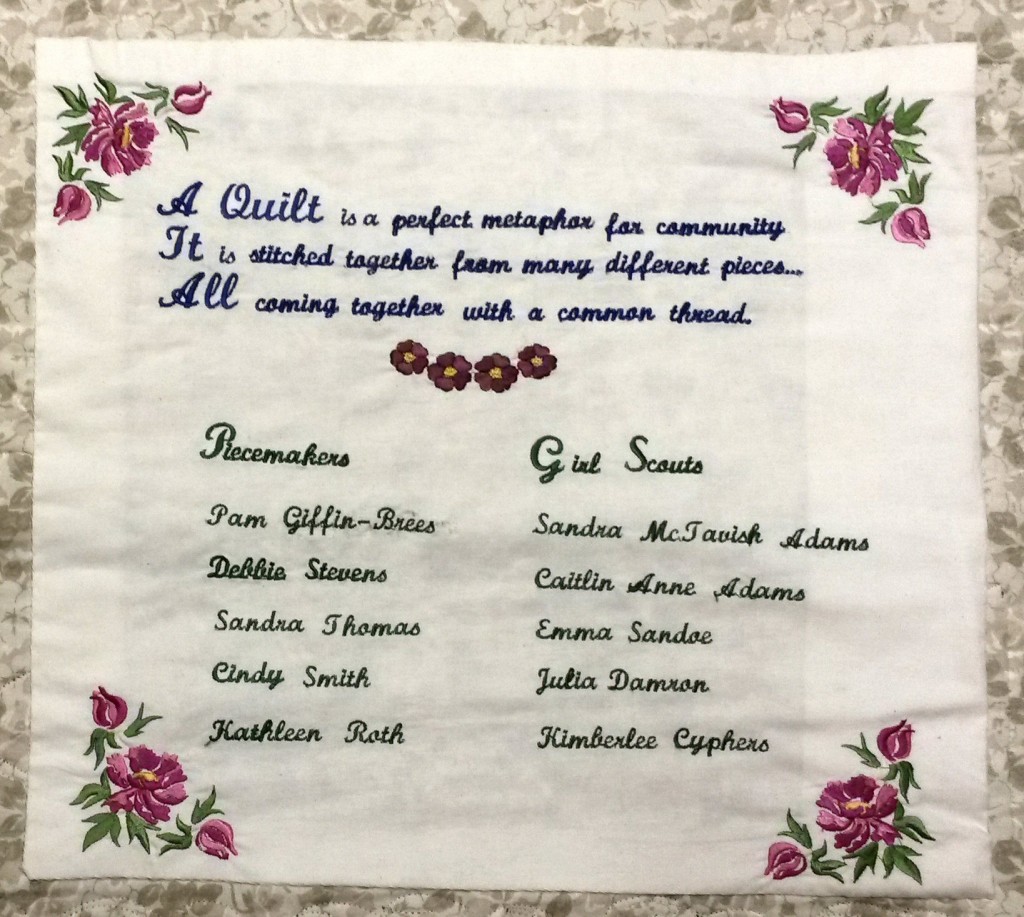 A Quilt is a perfect metaphor for community
It is stitched together from many different pieces...
All coming together with a common thread.
Piecemakers
Pam Giffin-Brees
Debbie Stevens
Sandra Thomas
Cindy Smith
Kathleen Roth
Girl Scouts
Sandra McTavish Adams
Caitlin Anne Adams
Emma Sandoe
Julia Damron
Kimberlee Cyphers